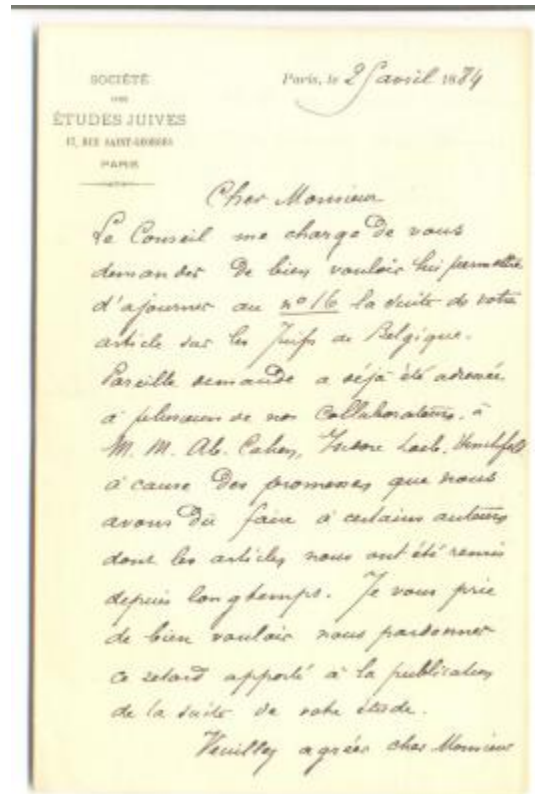 SOCIÉTÉ
DES
ÉTUDES JUIVES
17, RUE SAINT-GEORGES
PARIS
Paris, le 25 avril 1884
Cher Monsieur
Le Conseil me charge de vous
demander de bien vouloir lui permettre
d'ajourner au n° 16 la suite de votre
article sur les Juifs de Belgique.
Pareille demande a déjà été adressée
à plusieurs de nos collaborateurs, à
M. M. Ab. Cahen, Isidore Loeb,
à cause des promesses que nous
avons dû faire à certains auteurs
dont les articles nous ont été remis
depuis longtemps. Je vous prie
de bien vouloir nous pardonner
ce retard apporté à la publication
de la suite de votre étude.
Veuillez agréer cher Monsieur